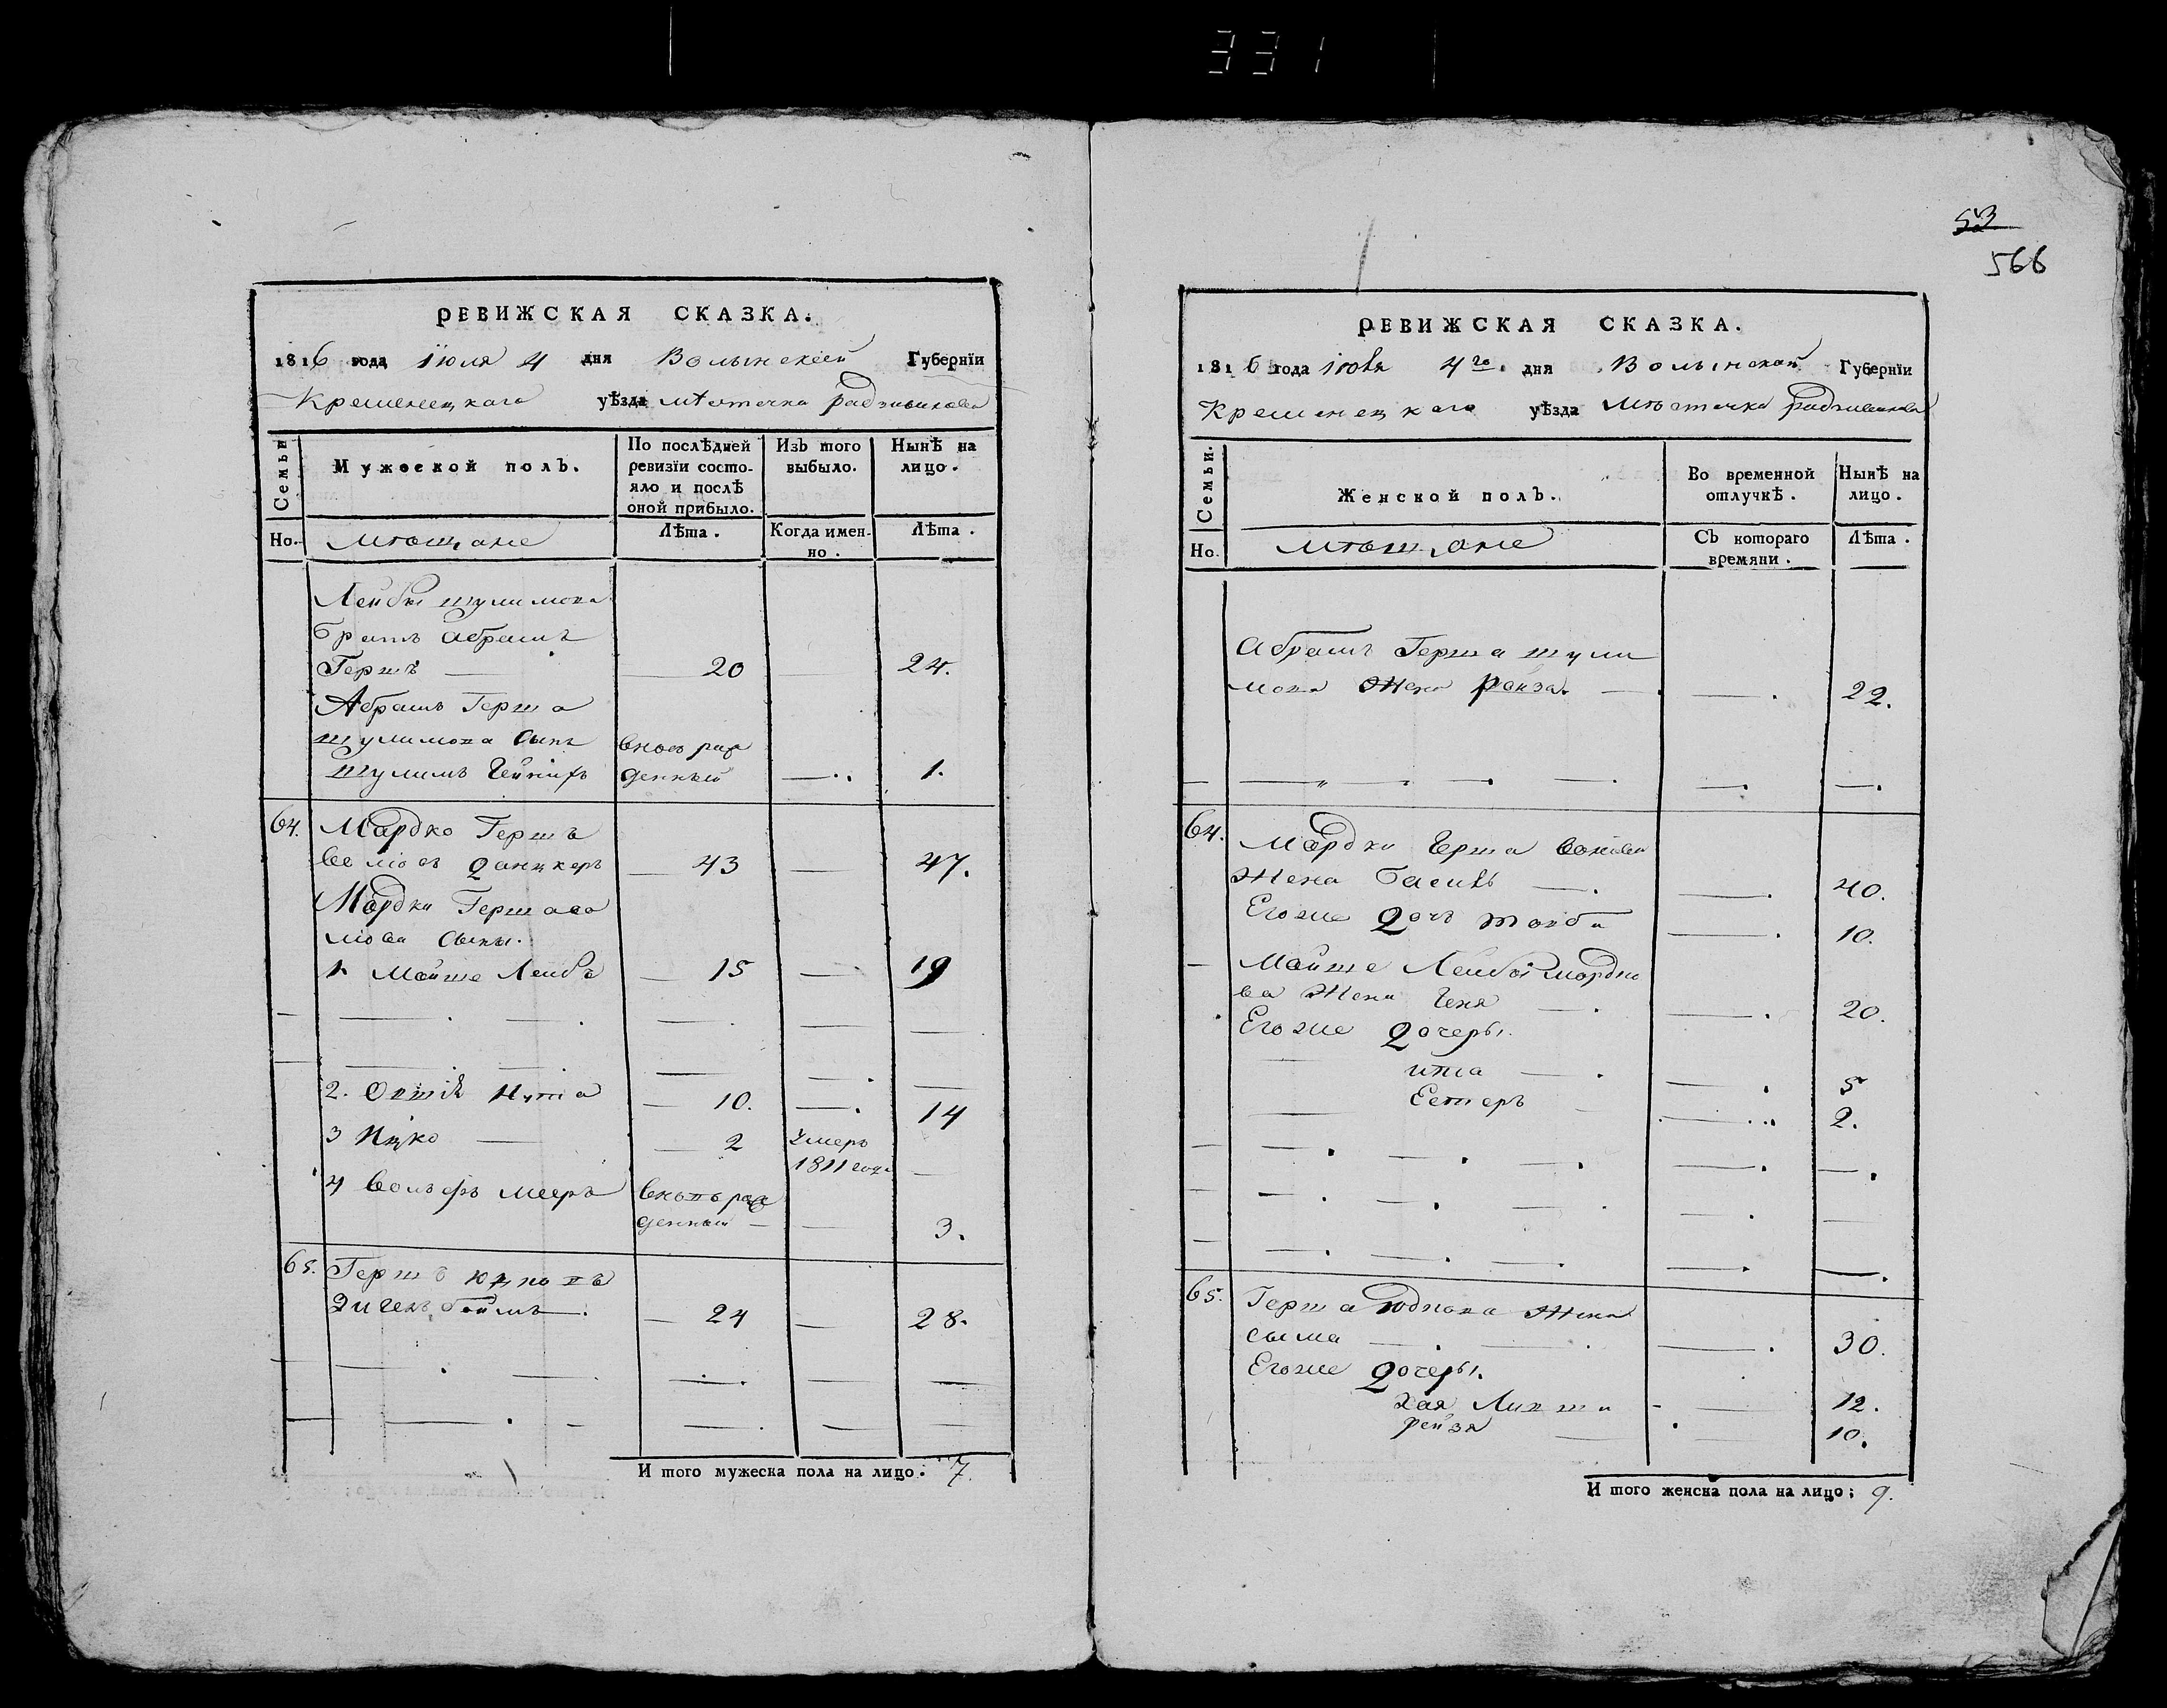 331
РЕВИЖСКАЯ СКАЗКА.
1816 года Июля 4 дня Волынской Губернїи
Кременецкаго уѣзда мѣстечка радзивилова
Семьи
Мужеской полъ.
По послѣдней ревизїи состо-
яло и послѣ
оной прибыло.
Изъ того
выбыло.
Нынѣ на
лицо.
Но.
мѣщане
Лѣта.
Когда имен-
но.
Лѣта.
Лейбы шулимова
братъ абрамъ
Гершъ — 20 — 24.
Абрамъ Герша
шулимова сынъ
шулимъ
вновь рож
денный — 1.
64. Мардко Гершъ
— 43 — 47.
Мардки Герша во
сыны.
1. Мойше Лейбъ — 15 — 19
2. Нута — 10. — 14
3 Ицко — 2
умеръ
1811 года —
4 Волъфъ мееръ
вновь рож
денный — — 3.
65. Гершъ
— 24 — 28.
И того мужеска пола на лицо: 7.
53
566
РЕВИЖСКАЯ СКАЗКА.
1816 года 4го дня Волынской Губернїи
Кременецкаго уѣзда Мѣстечка радзивилова
Семьи.
Женской полъ.
Во временной
отлучкѣ.
Нынѣ на
лицо.
Но.
мѣщане
Съ котораго
времяни.
Лѣта.
Абрамъ Герша шули
мова Жена Рейза. — — 22.
64. Мардки Герша
Жена Басивъ — — 40.
Егоже Дочь — 10.
Мойше Лейбы мордко
ва Жена Геня — — 20.
Егоже Дочеры.
ита — — 5
Естеръ — 2.
65. Герша Юдкова Жена
сыма — — 30.
Егоже Дочеры.
Хая — 12.
рейзя — 10.
И того женска пола на лицо; 9.